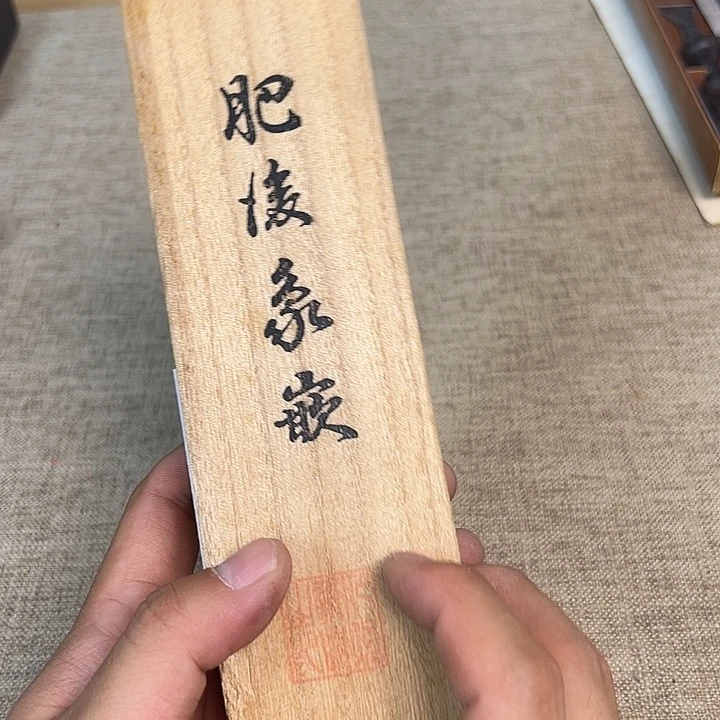 肥後象嵌